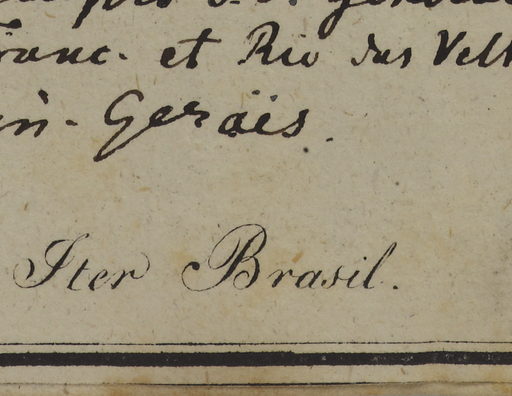 Franc. et Rio das Velh
in. Geraës.
Iter Brasil.